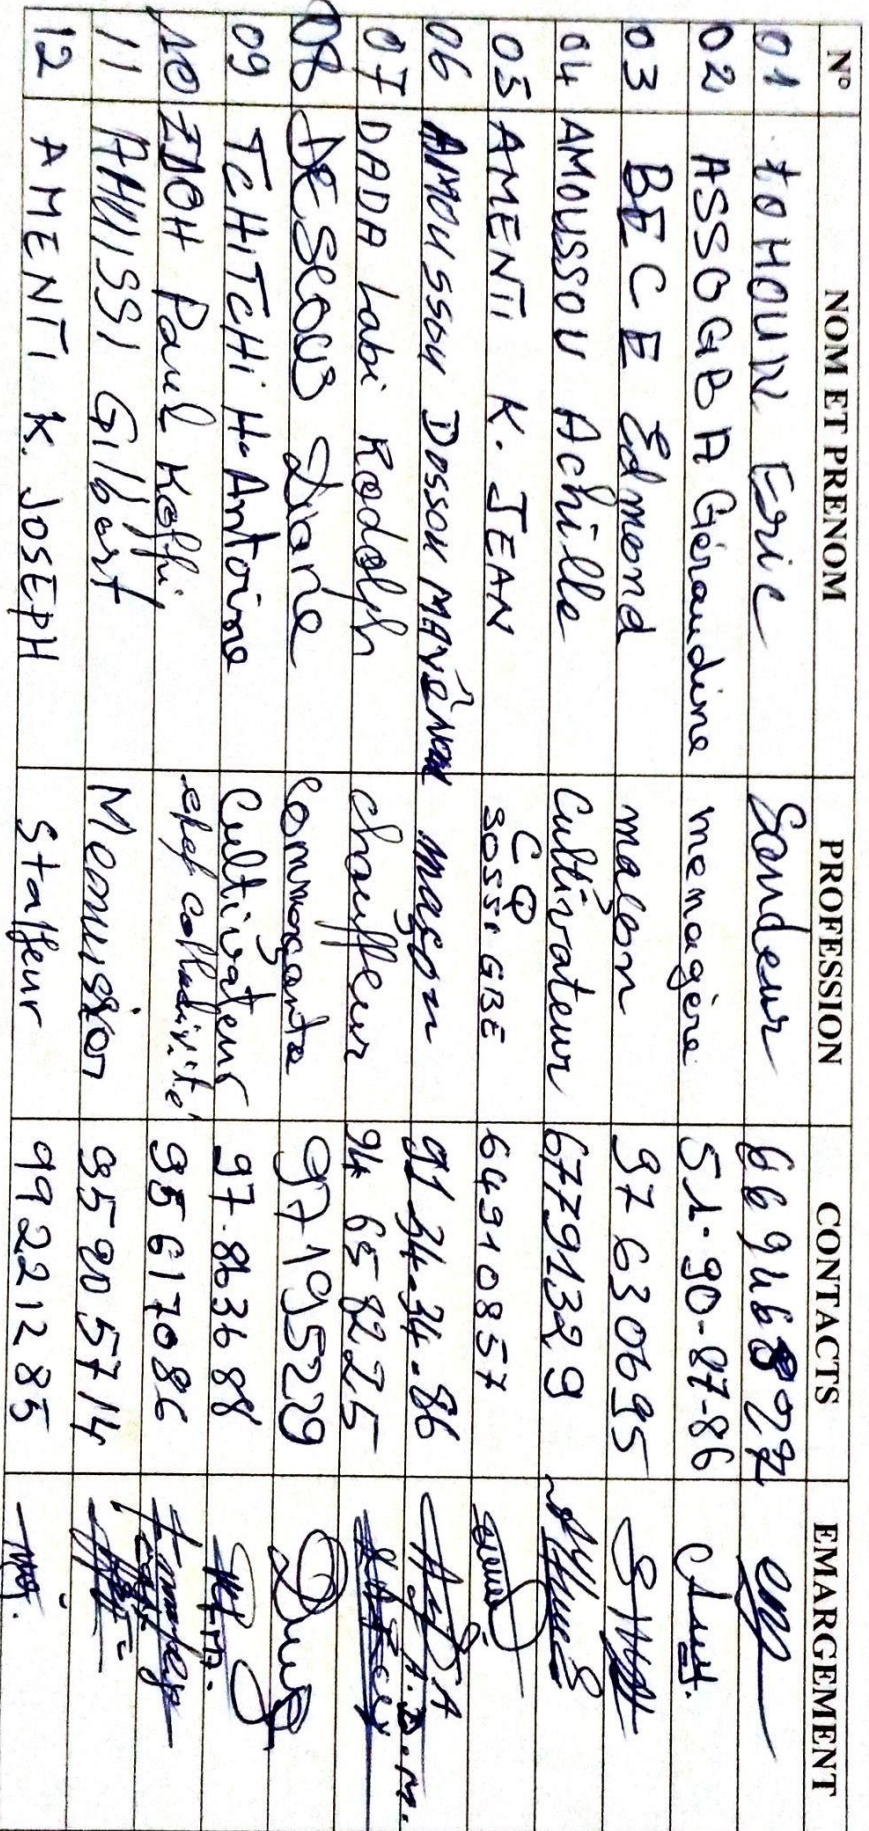 N° NOM ET PRENOM PROFESSION CONTACTS EMARGEMENT
01 toHOUN Eric Soudeur
02 ASSOGBA Géraudine menagère 51-90-87-86
03 BECE Edmond macon 97630695
04 AMOUSSOU Achille Cultivateur 67791329
05 AMENTI K. JEAN CQ SOSSIGBE 64910857
06 AMOUSSOU Dossou maçon 91.34.34.86 A.D.M.
07 DADA Labi Rodolph chauffeur 94658225
08 DESLOUS Diane Commerçante 97195229
09 TCHITCHI H. Antoine Cultivateur 97.863688
10 ZDOH Paul Koffi chef collectivité 95617086
11 AHUISSI Gilbert Menuisier 95905714
12 AMENTI K. JOSEPH Staffeur 99221285